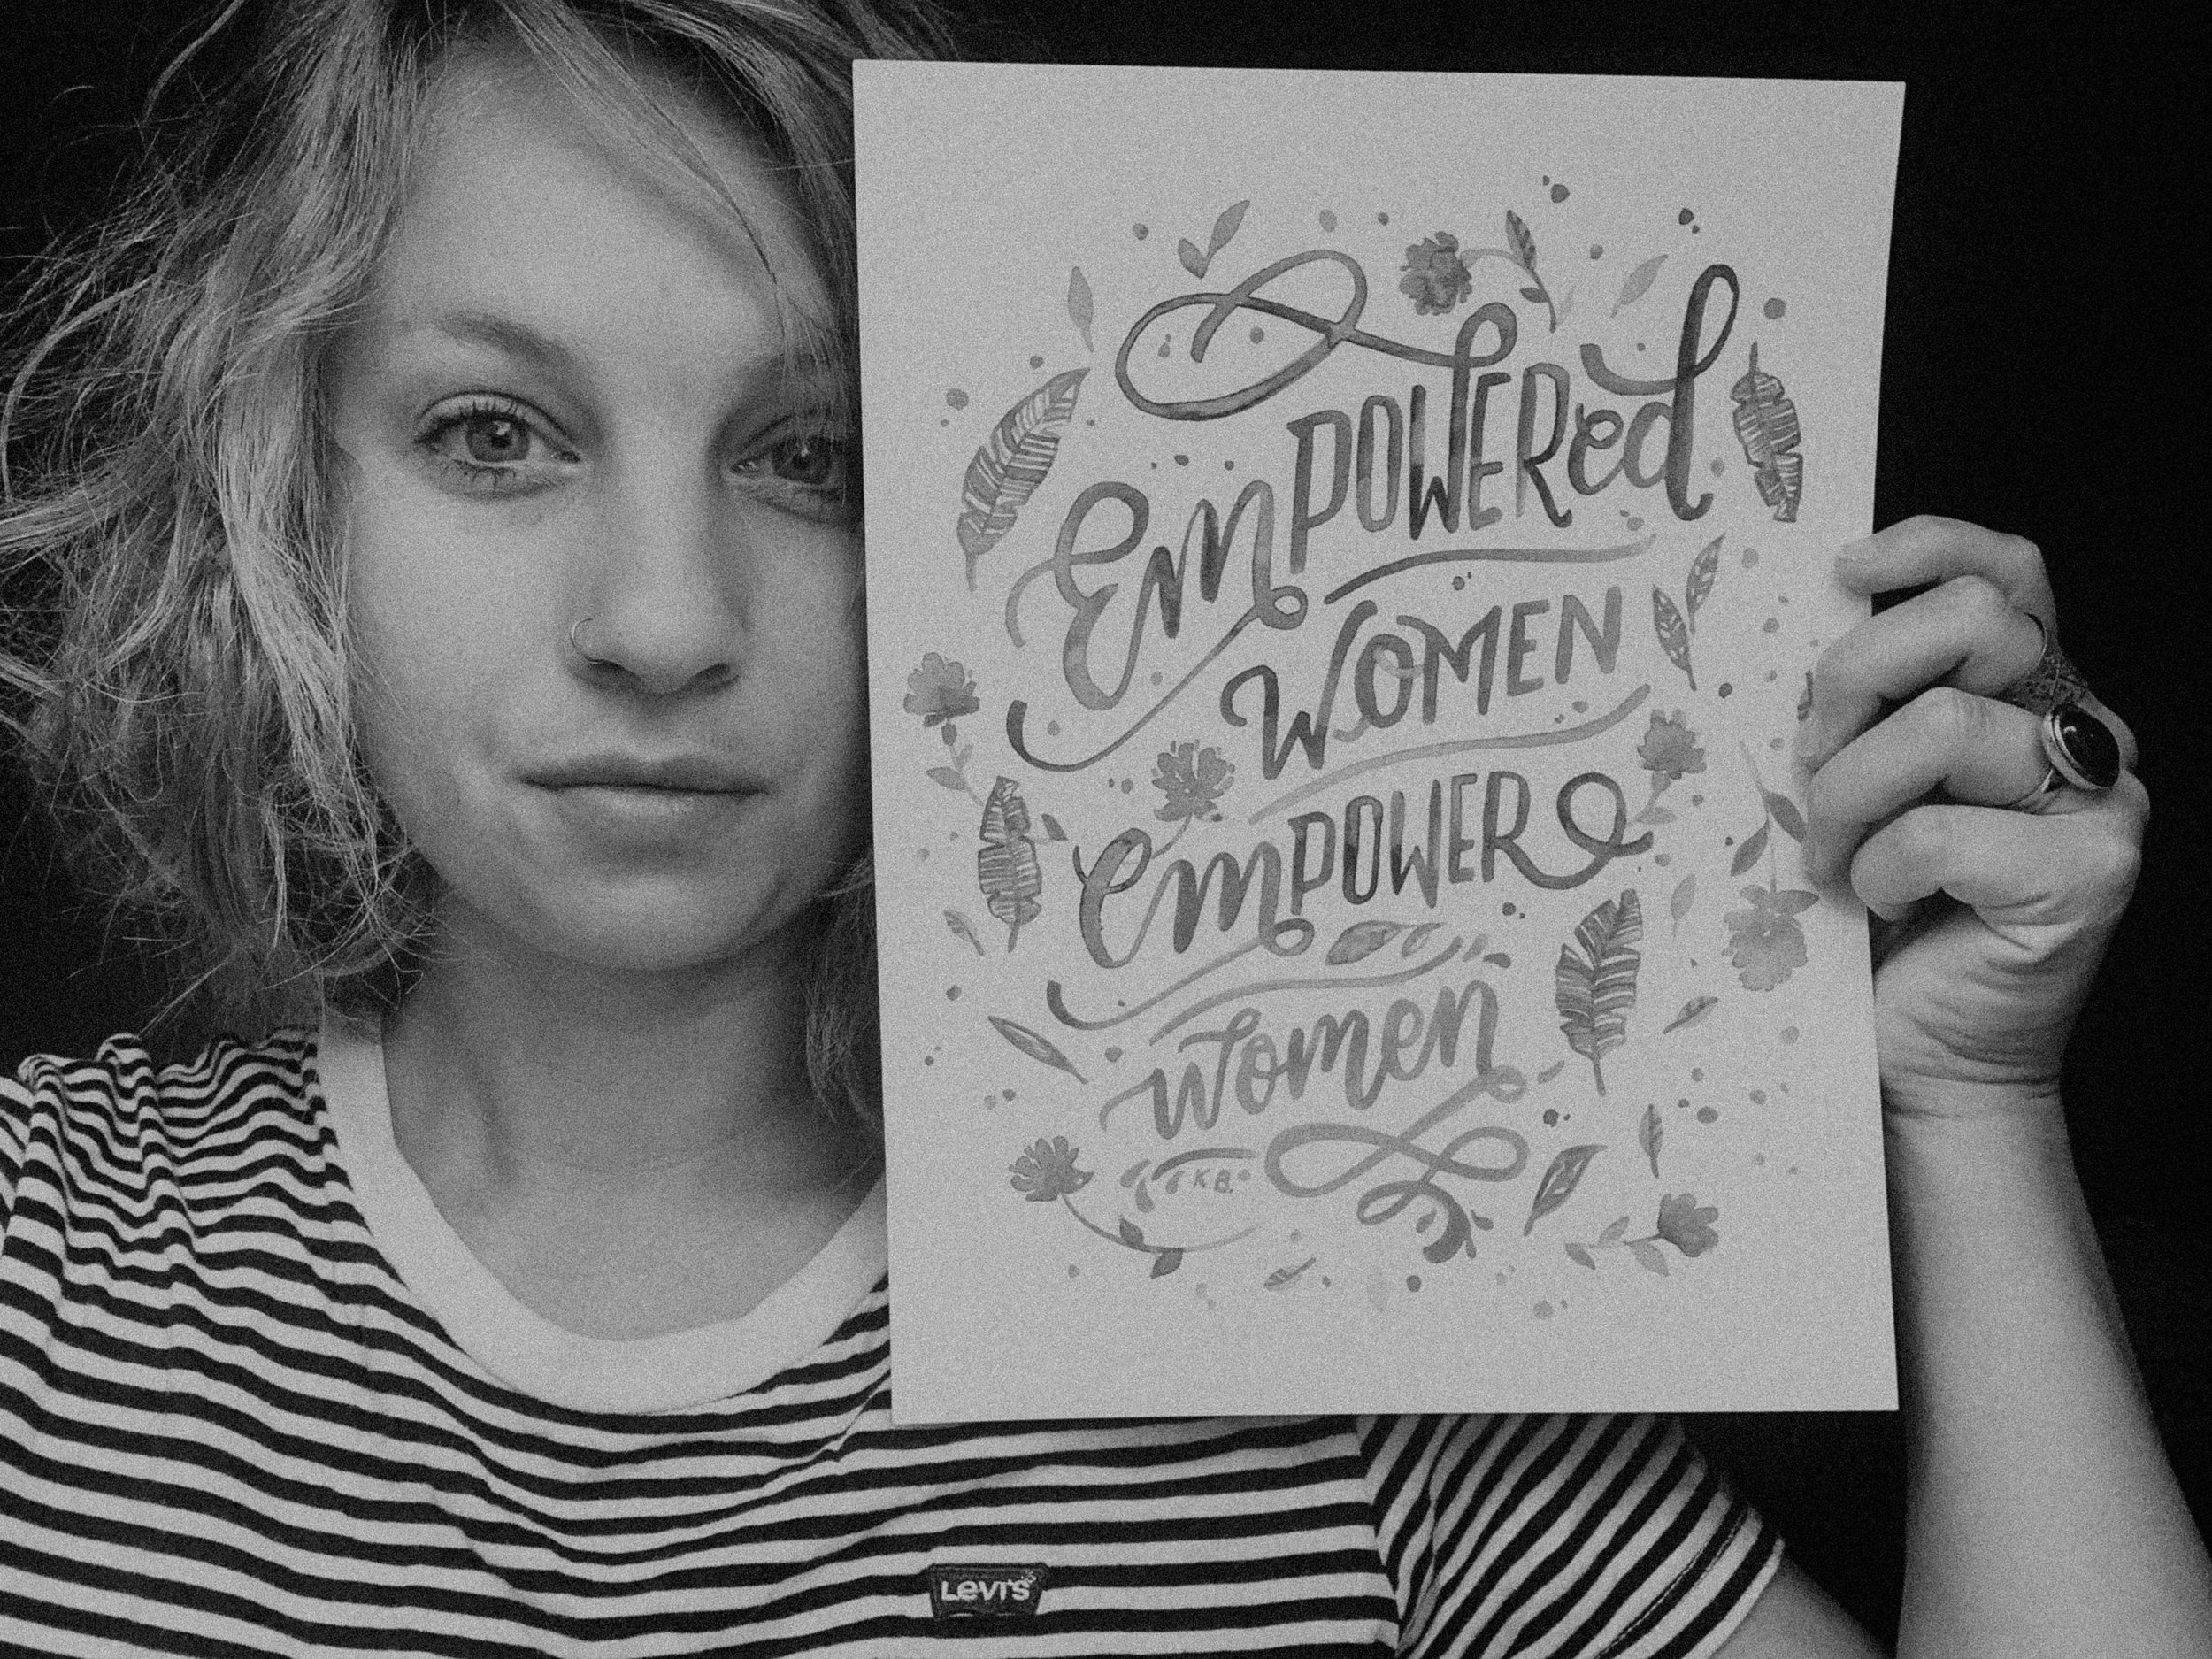 EmPOWERed
WOMEN
emPOWER
women
K.B.
Levi's